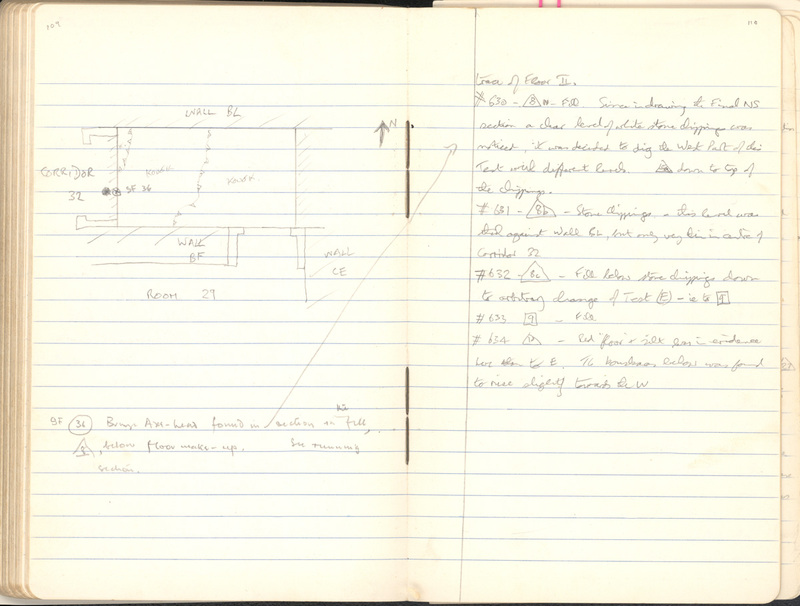 109
WALL BL
N
CORRIDOR
32
SF 36
WALL
BF
WALL
CE
ROOM 29
SF 36 Bronze Axe-head found in NS section in fill,
below floor make-up. See running
section.
110
trace of Floor II.
#630 - 8a - Fill Since in drawing the Final NS
section a clear level of white stone chippings was
noticed, it was decided to dig the West Part of this
Test with different levels. 8a down to top of
the chippings.
#631 - 8b - Stone chippings - this level was
thick against Wall BL, but only very thin in centre of
Corridor 32
#632 - 8c - Fill below stone chippings down
to arbitrary change of Test E - ie to 9
#633 9 - Fill
#634 10 - Red 'floor' + silt less in evidence
here than to E. The boundaries below was found
to rise slightly towards the W